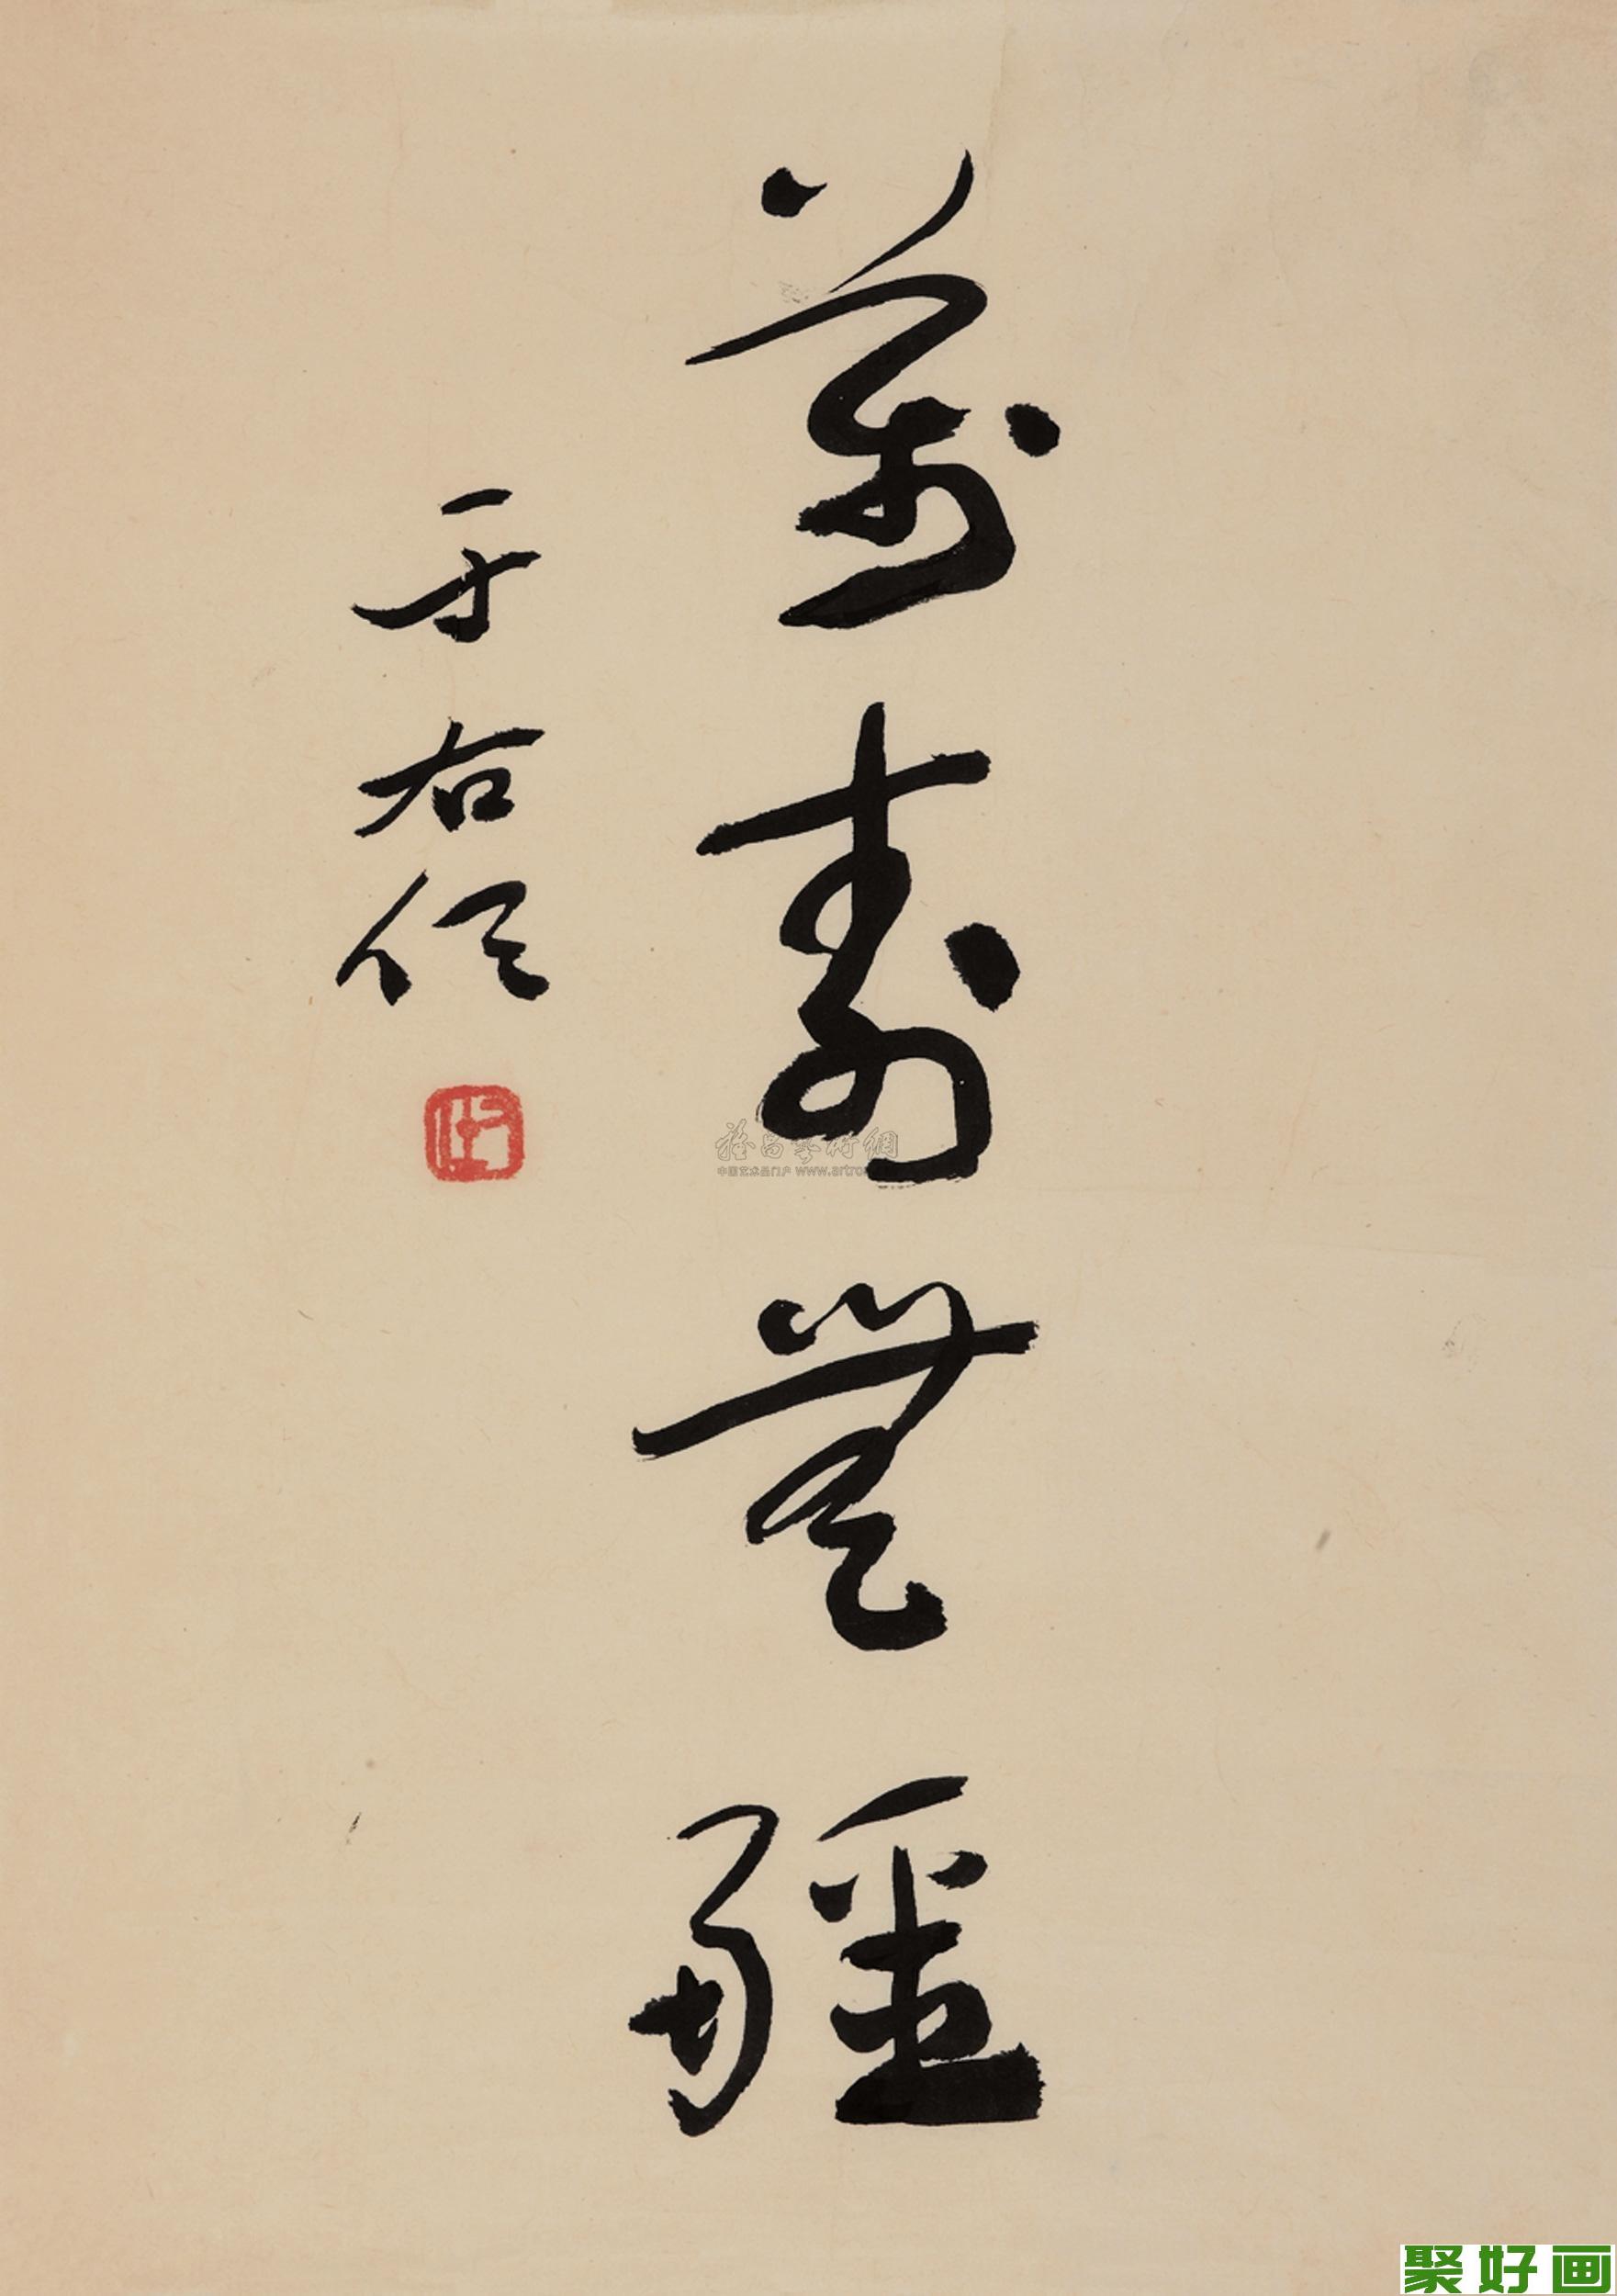 萬壽無疆
于右任
雅昌藝術網
中国艺术品门户 www.artron
聚好画